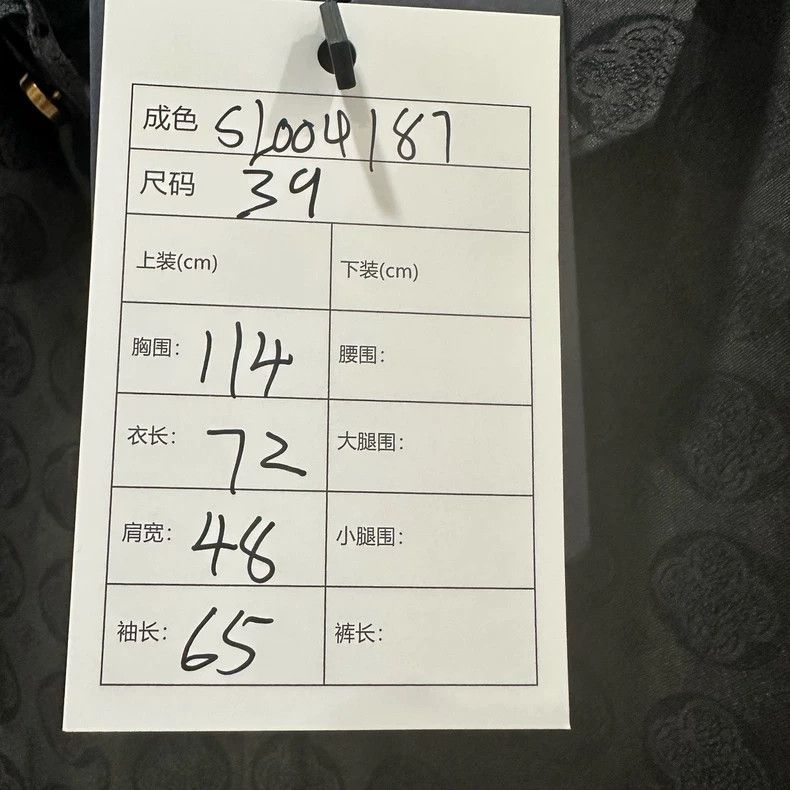 成色 S1004187
尺码 39
上装(cm) 下装(cm)
胸围: 114 腰围:
衣长: 72 大腿围:
肩宽: 48 小腿围:
袖长: 65 裤长: